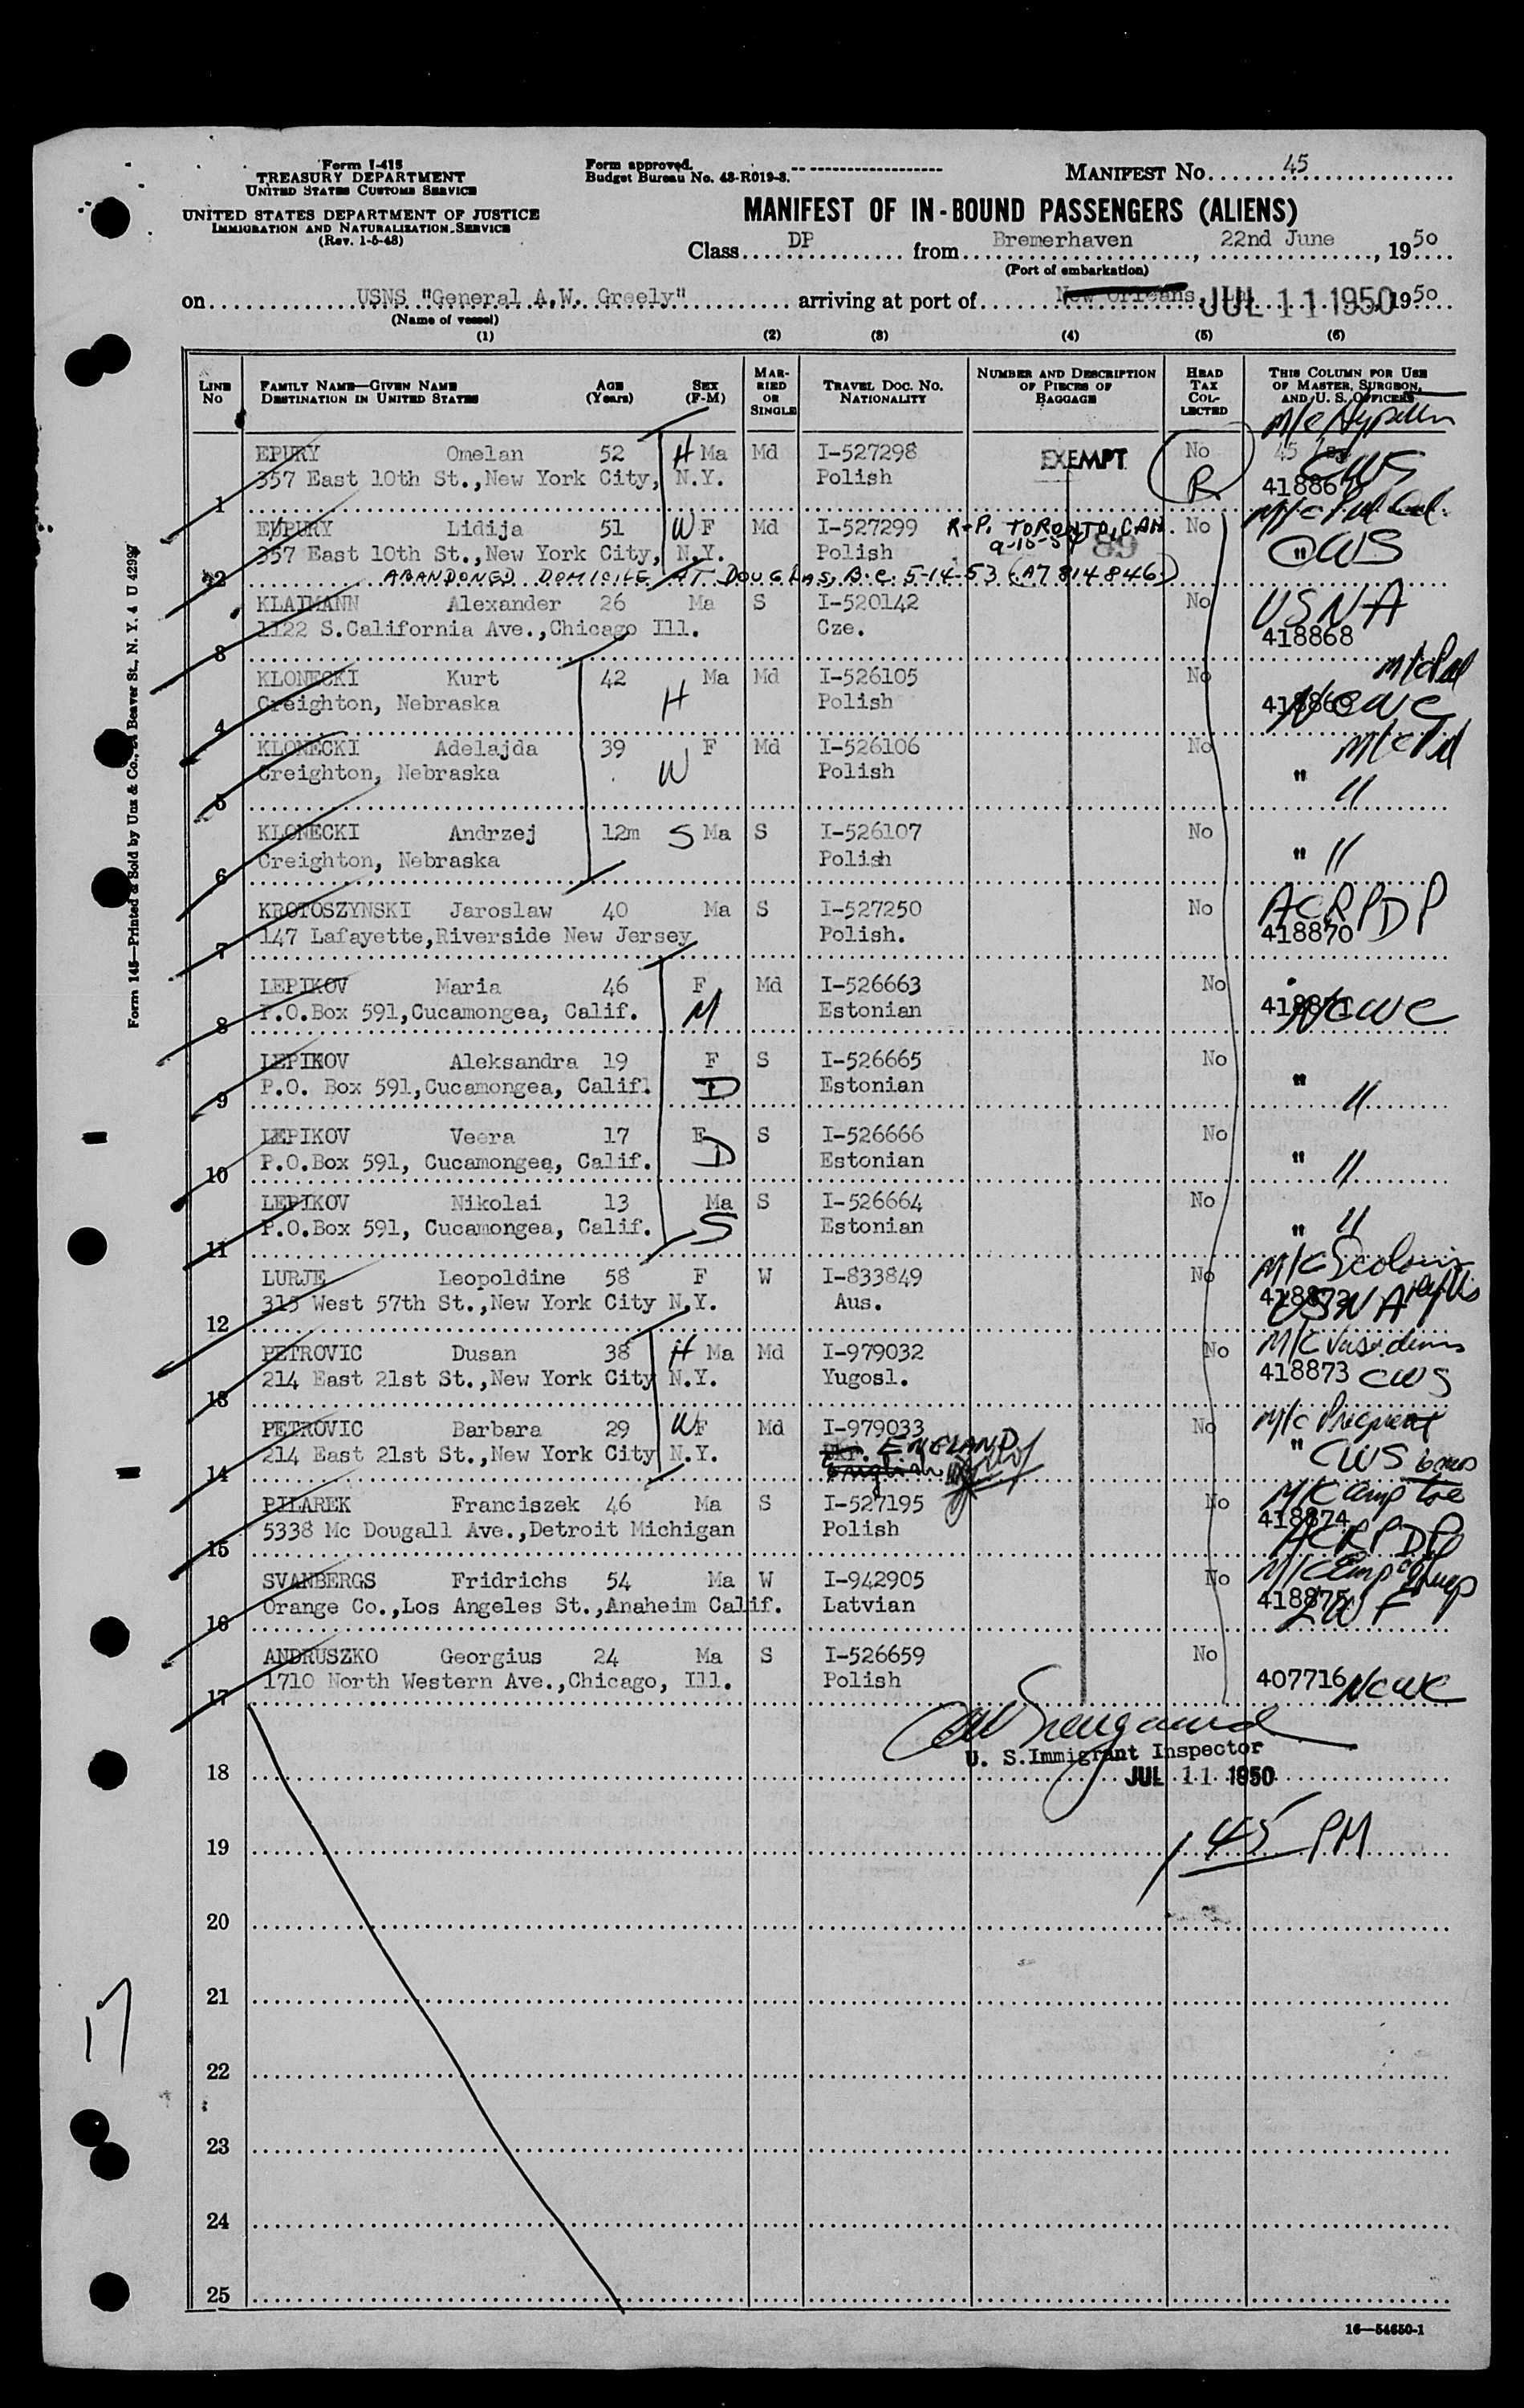 Form I-415
TREASURY DEPARTMENT
UNITED STATES CUSTOMS SERVICE
UNITED STATES DEPARTMENT OF JUSTICE
IMMIGRATION AND NATURALIZATION SERVICE
(Rev. 1-5-48)
Form approved.
Budget Bureau No. 43-R019-3.
MANIFEST No. 45
MANIFEST OF IN-BOUND PASSENGERS (ALIENS)
Class DP from Bremerhaven, 22nd June, 1950
(Port of embarkation)
on USNS "General A.W. Greely" arriving at port of New Orleans, JUL 11 1950, 1950
(Name of vessel)
(1) (2) (3) (4) (5) (6)
LINE No
FAMILY NAME—GIVEN NAME DESTINATION IN UNITED STATES
AGE (Years)
SEX (F-M)
MARRIED OR SINGLE
TRAVEL DOC. NO. NATIONALITY
NUMBER AND DESCRIPTION OF PIECES OF BAGGAGE
HEAD TAX COLLECTED
THIS COLUMN FOR USE OF MASTER, SURGEON, AND U. S. OFFICERS
EPURY Omelan 52 H Ma Md I-527298 EXEMPT No
1 357 East 10th St.,New York City, N.Y. Polish R CWS
EUPURY Lidija 51 W F Md I-527299 R-P. TORONTO, CAN. No
2 357 East 10th St.,New York City, N.Y. Polish 89 " CWS
ABANDONED DOMICILE AT DOUGLAS, B.C. 5-14-53 (A7 814 846)
KLATMANN Alexander 26 Ma S I-520142 No USNA
3 1122 S.California Ave.,Chicago Ill. Cze. 418868
KLONECKI Kurt 42 Ma Md I-526105 No
4 Creighton, Nebraska H Polish 418869 NCWC
KLONECKI Adelajda 39 F Md I-526106 No
5 Creighton, Nebraska W Polish " "
KLONECKI Andrzej 12m S Ma S I-526107 No
6 Creighton, Nebraska Polish " "
KROTOSZYNSKI Jaroslaw 40 Ma S I-527250 No ACRPDP
7 147 Lafayette,Riverside New Jersey Polish. 418870
LEPIKOV Maria 46 F Md I-526663 No
8 P.O.Box 591,Cucamongea, Calif. M Estonian 418871 NCWC
LEPIKOV Aleksandra 19 F S I-526665 No
9 P.O. Box 591,Cucamongea, Calif. D Estonian " "
LEPIKOV Veera 17 F S I-526666 No
10 P.O.Box 591, Cucamongea, Calif. D Estonian " "
LEPIKOV Nikolai 13 Ma S I-526664 No
11 P.O.Box 591, Cucamongea, Calif. S Estonian " "
LURJE Leopoldine 58 F W I-833849 No
12 315 West 57th St.,New York City N.Y. Aus. USNA
PETROVIC Dusan 38 H Ma Md I-979032 No
13 214 East 21st St.,New York City N.Y. Yugosl. 418873 CWS
PETROVIC Barbara 29 W F Md I-979033 No M/C Pregnant
14 214 East 21st St.,New York City N.Y. ENGLAND " CWS 6 mos
English
PILAREK Franciszek 46 Ma S I-527195 No M/C amp toe
15 5338 Mc Dougall Ave.,Detroit Michigan Polish 418874 ACRPDP
SVANBERGS Fridrichs 54 Ma W I-942905 No
16 Orange Co.,Los Angeles St.,Anaheim Calif. Latvian 418875 LWF
ANDRUSZKO Georgius 24 Ma S I-526659 No
17 1710 North Western Ave.,Chicago, Ill. Polish 407716 NCWC
U. S. Immigrant Inspector
18 JUL 11 1950
19 1 45 PM
20
21
22
23
24
25
17
Form 145—Printed & Sold by Unz & Co., Beaver St., N. Y. 4 U 4299
16—54650-1